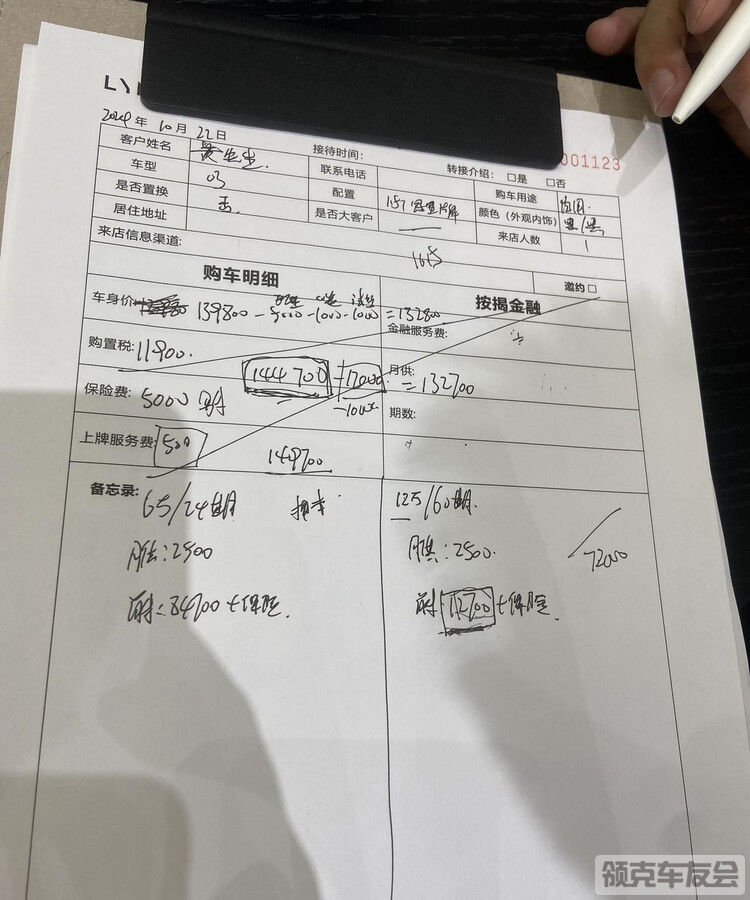 LY
001123
2024年10月22日
接待时间:
转接介绍: 口是 口否
客户姓名 黄先生
联系电话
购车用途
车型 03
配置
颜色(外观内饰) 黑/黑
是否置换 否
是否大客户
来店人数 1
居住地址
来店信息渠道:
邀约口
购车明细
按揭金融
车身价 139800 - 5000 - 1000 - 1000 = 132800
金融服务费:
购置税: 11900.
144700 - 12000 = 132700
月供:
保险费: 5000
-1000
期数:
上牌服务费: 500
149700
备忘录: 65/24期
125/60期.
月供: 2500
月供: 2500.
72000
首付: 84700 + 保险.
首付: 12700 + 保险.
领克车友会